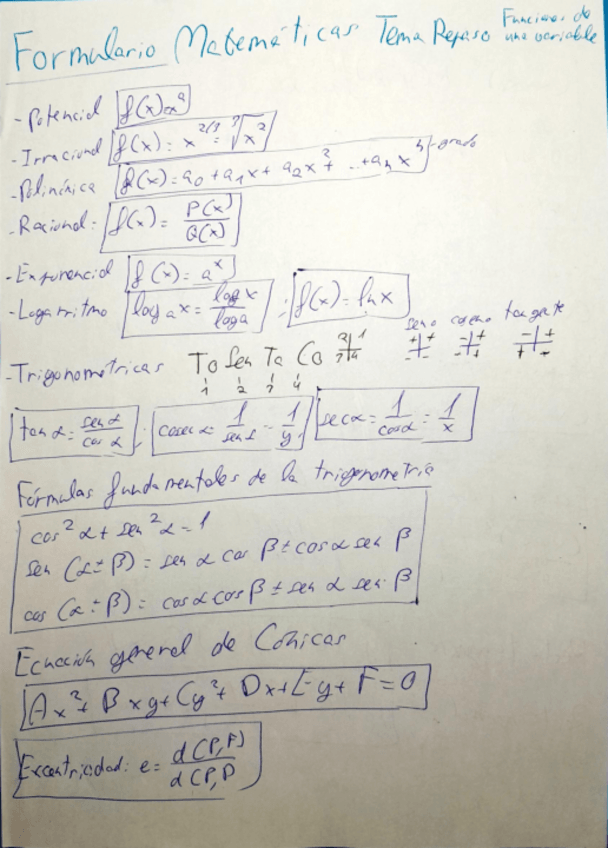 Formulario Matemáticas Tema Repaso Funciones de una variable
- Potencial f(x)=xᵃ
- Irracional f(x) = x^2/3 = ³√x²
- Polinómica f(x) = a₀ + a₁x + a₂x² + ... + aₙxⁿ → grado
- Racional: f(x) = P(x)/Q(x)
- Exponencial f(x) = aˣ
- Logarritmo logₐx = log x/log a ; f(x) = ln x
seno coseno tangente
- Trigonometricas To Sen Ta Co 2 1 3 4
1 2 3 4
tan α = sen α/cos α ; cosec α = 1/sen α = 1/y ; sec α = 1/cos α = 1/x
Fórmulas fundamentales de la trigonometría
cos² α + sen² α = 1
sen (α ± β) = sen α cos β ± cos α sen β
cos (α ± β) = cos α cos β ± sen α sen β
Ecuación general de Cónicas
Ax² + Bxy + Cy² + Dx + Ey + F = 0
Excentricidad: e = d(P,F)/d(P,D